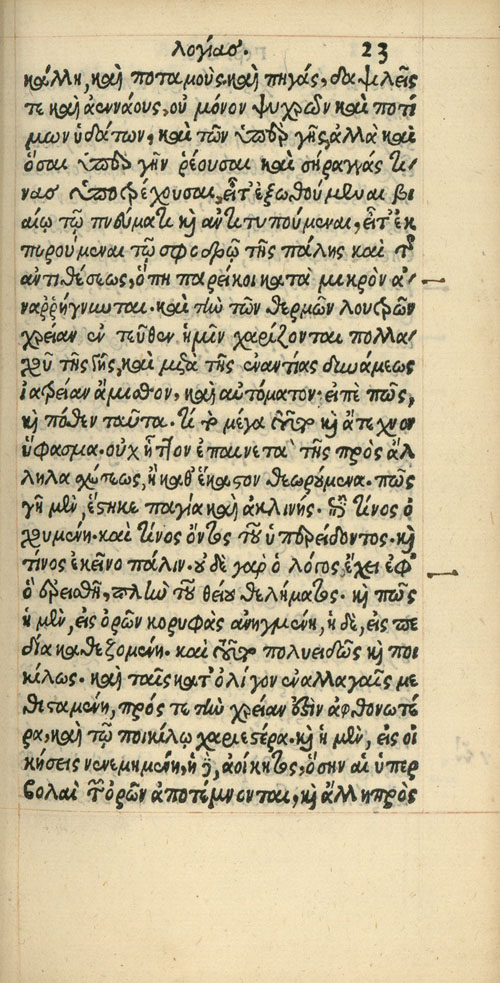 λογίας. 23
κάλλη, καὶ ποταμοὺς καὶ πηγάς, δαψιλεῖς
τε καὶ ἀεννάους, οὐ μόνον ψυχρῶν καὶ ποτί
μων ὑδάτων, καὶ τῶν ὑπὲρ γῆς, ἀλλὰ καὶ
ὅσαι ὑπὸ γῆν ῥέουσαι καὶ σήραγγάς τι
νας ὑποτρέχουσαι, εἶτ' ἐξωθούμεναι βι
αίῳ τῷ πνεύματι καὶ ἀντιτυπούμεναι, εἶτ' ἐκ
πυρούμεναι τῷ σφοδρῷ τῆς πάλης καὶ τῆς
ἀντιθέσεως, ὅπη παρείκοι κατὰ μικρὸν ἀ
ναῤῥήγνυνται. καὶ τὴν τῶν θερμῶν λουτρῶν
χρείαν ἐντεῦθεν ἡμῖν χαρίζονται πολλα
χοῦ τῆς γῆς, καὶ μετὰ τῆς ἐναντίας δυνάμεως
ἰατρείαν ἄμισθον, καὶ αὐτόματον· εἰπὲ πῶς,
καὶ πόθεν ταῦτα. τί τὸ μέγα τοῦτο καὶ ἄτεχνον
ὕφασμα. οὐχ ἧττον ἐπαινετὰ τῆς πρὸς ἄλ
ληλα σχέσεως, ἢ καθ' ἕκαστον θεωρούμενα. πῶς
γῆ μὲν, ἕστηκε παγία καὶ ἀκλινής. ἐπὶ τίνος ὀ
χουμένη. καὶ τίνος ὄντος τοῦ ὑπερείδοντος. καὶ
τίνος ἐκεῖνο πάλιν. οὐδὲ γὰρ ὁ λόγος ἔχει ἐφ'
ὃ ἐρεισθῇ, πλὴν τοῦ θείου θελήματος. καὶ πῶς
ἡ μὲν, εἰς ὀρῶν κορυφὰς ἀνηγμένη, ἡ δὲ, εἰς πε
δία καθεζομένη. καὶ τοῦτο πολυειδῶς καὶ ποι
κίλως. καὶ ταῖς κατ' ὀλίγον ἐναλλαγαῖς με
θισταμένη, πρός τε τὴν χρείαν ἐστὶν ἀφθονωτέ
ρα, καὶ τῷ ποικίλῳ χαριεστέρα. καὶ ἡ μὲν, εἰς οἰ
κήσεις νενεμημένη, ἡ δὲ, ἀοίκητος, ὅσην αἱ ὑπερ
βολαὶ τῶν ὀρῶν ἀποτέμνονται, καὶ ἄλλη πρὸς